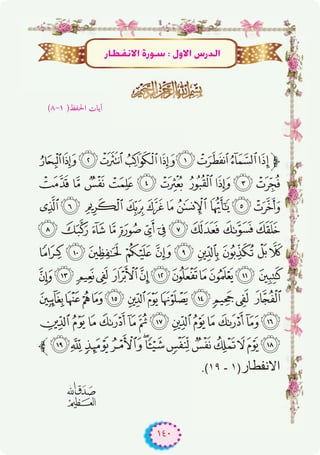 الدرس الاول : سورة الانفطار
بسم الله الرحمن الرحيم
آيات الحفظ (١-٨)
﴿ إِذَا ٱلسَّمَآءُ ٱنفَطَرَتْ ۝١ وَإِذَا ٱلْكَوَاكِبُ ٱنتَثَرَتْ ۝٢ وَإِذَا ٱلْبِحَارُ
فُجِّرَتْ ۝٣ وَإِذَا ٱلْقُبُورُ بُعْثِرَتْ ۝٤ عَلِمَتْ نَفْسٌ مَّا قَدَّمَتْ
وَأَخَّرَتْ ۝٥ يَٰٓأَيُّهَا ٱلْإِنسَٰنُ مَا غَرَّكَ بِرَبِّكَ ٱلْكَرِيمِ ۝٦ ٱلَّذِى
خَلَقَكَ فَسَوَّىٰكَ فَعَدَلَكَ ۝٧ فِىٓ أَىِّ صُورَةٍ مَّا شَآءَ رَكَّبَكَ ۝٨
كَلَّا بَلْ تُكَذِّبُونَ بِٱلدِّينِ ۝٩ وَإِنَّ عَلَيْكُمْ لَحَٰفِظِينَ ۝١٠ كِرَامًا
كَٰتِبِينَ ۝١١ يَعْلَمُونَ مَا تَفْعَلُونَ ۝١٢ إِنَّ ٱلْأَبْرَارَ لَفِى نَعِيمٍ ۝١٣ وَإِنَّ
ٱلْفُجَّارَ لَفِى جَحِيمٍ ۝١٤ يَصْلَوْنَهَا يَوْمَ ٱلدِّينِ ۝١٥ وَمَا هُمْ عَنْهَا بِغَآئِبِينَ
۝١٦ وَمَآ أَدْرَىٰكَ مَا يَوْمُ ٱلدِّينِ ۝١٧ ثُمَّ مَآ أَدْرَىٰكَ مَا يَوْمُ ٱلدِّينِ
۝١٨ يَوْمَ لَا تَمْلِكُ نَفْسٌ لِّنَفْسٍ شَيْـًٔا وَٱلْأَمْرُ يَوْمَئِذٍ لِّلَّهِ ۝١٩ ﴾
الانفطار (١ - ١٩).
صدق الله العظيم
١٤٠